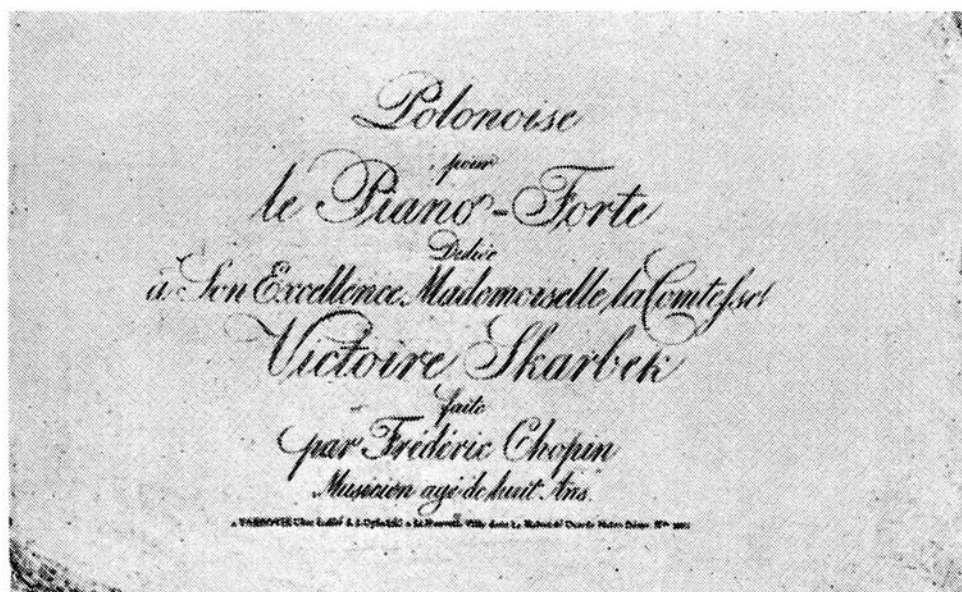 Polonoise
pour
le Piano-Forte
Dediée
à Son Excellence Mademoiselle la Comtesse
Victoire Skarbek
faite
par Frédéric Chopin
Musicien agé de huit Ans
a VARSOVIE Chez